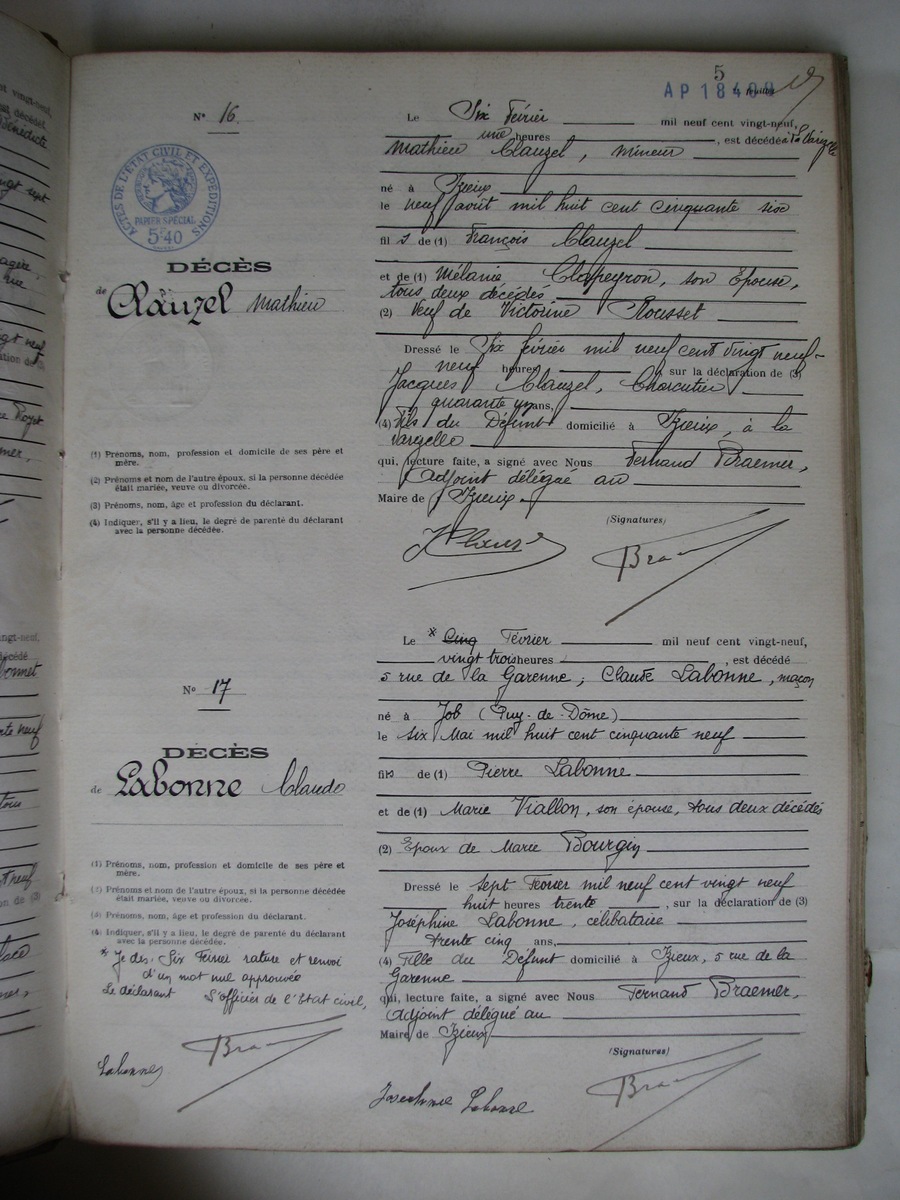 5
AP 1840
Nº 16
ACTES DE L'ÉTAT CIVIL ET EXPÉDITIONS
PAPIER SPÉCIAL
5F40
DÉCÈS
de Clauzel Mathieu
(1) Prénoms, nom, profession et domicile de ses père et
mère.
(2) Prénoms et nom de l'autre époux, si la personne décédée
était mariée, veuve ou divorcée.
(3) Prénoms, nom, âge et profession du déclarant.
(4) Indiquer, s'il y a lieu, le degré de parenté du déclarant
avec la personne décédée.
Le Six Février mil neuf cent vingt-neuf,
une heures, est décédé à la Varizelle
Mathieu Clauzel, mineur
né à Izieux
le neuf août mil huit cent cinquante six
fils de (1) François Clauzel
et de (1) Mélanie Clapeyron, son Epouse,
tous deux décédés
(2) Veuf de Victorine Rousset
Dressé le Six février mil neuf cent vingt neuf
neuf heures, sur la déclaration de (3)
Jacques Clauzel, Charcutier
quarante un ans,
(4) Fils du Défunt domicilié à Izieux, à la
Varizelle
qui, lecture faite, a signé avec Nous Fernand Braemer,
Adjoint délégué au
Maire de Izieux
(Signatures)
J Clauzel
Nº 17
DÉCÈS
de Labonne Claude
(1) Prénoms, nom, profession et domicile de ses père et
mère.
(2) Prénoms et nom de l'autre époux, si la personne décédée
était mariée, veuve ou divorcée.
(3) Prénoms, nom, âge et profession du déclarant.
(4) Indiquer, s'il y a lieu, le degré de parenté du déclarant
avec la personne décédée.
* Je dis: Six Février rature et renvoi
d'un mot nul approuvée
Le déclarant L'officier de l'Etat civil,
Labonne
Le * Cinq Février mil neuf cent vingt-neuf,
vingt trois heures, est décédé
5 rue de la Garenne, Claude Labonne, maçon
né à Job (Puy-de-Dôme)
le six Mai mil huit cent cinquante neuf
fils de (1) Pierre Labonne
et de (1) Marie Viallon, son épouse, tous deux décédés
(2) Epoux de Marie Bourgin
Dressé le sept Février mil neuf cent vingt neuf
huit heures trente, sur la déclaration de (3)
Joséphine Labonne, célibataire
trente cinq ans,
(4) Fille du Défunt domicilié à Izieux, 5 rue de la
Garenne
qui, lecture faite, a signé avec Nous Fernand Braemer,
Adjoint délégué au
Maire de Izieux
(Signatures)
Josephine Labonne